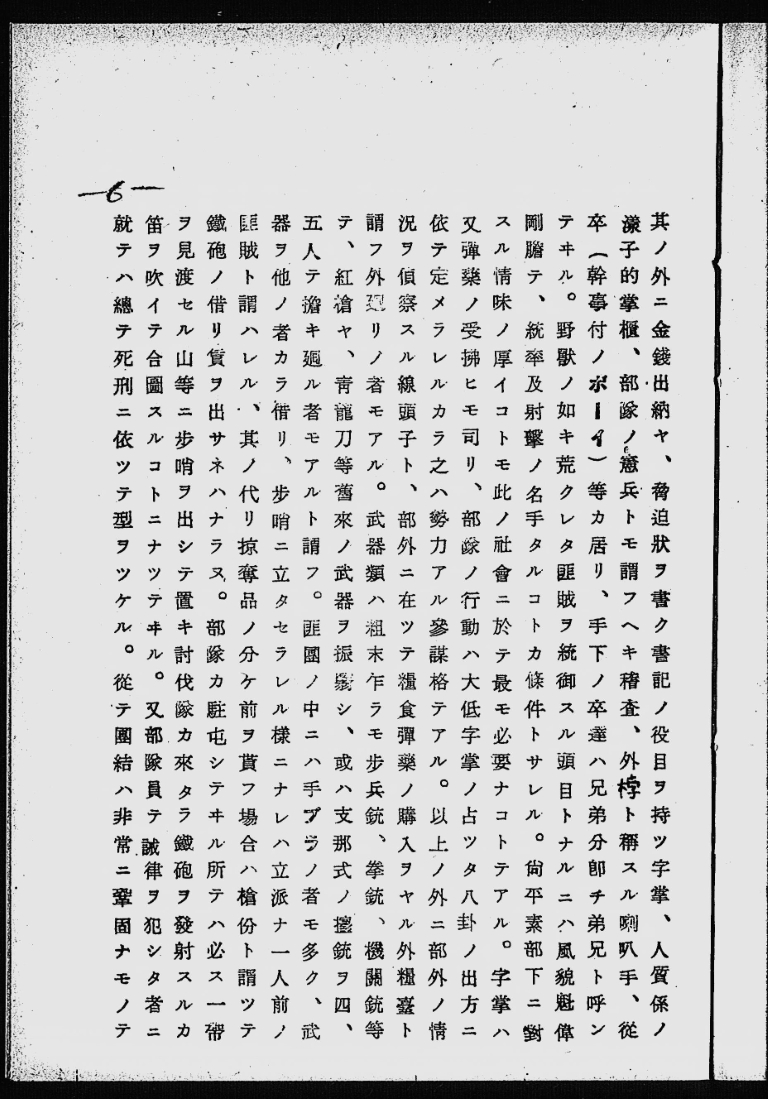 —6—
其ノ外ニ金錢出納ヤ、脅迫狀ヲ書ク書記ノ役目ヲ持ツ字掌、人質係ノ
漾子的掌櫃、部隊ノ憲兵トモ謂フヘキ稽査、外悖ト稱スル喇叭手、從
卒(幹事付ノボーイ)等カ居リ、手下ノ卒達ハ兄弟分卽チ弟兄ト呼ン
テヰル。野獸ノ如キ荒クレタ匪賊ヲ統御スル頭目トナルニハ風貌魁偉
剛膽テ、統率及射擊ノ名手タルコトカ條件トサレル。尙平素部下ニ對
スル情味ノ厚イコトモ此ノ社會ニ於テ最モ必要ナコトテアル。字掌ハ
又彈藥ノ受拂ヒモ司リ、部隊ノ行動ハ大低字掌ノ占ツタ八卦ノ出方ニ
依テ定メラレルカラ之ハ勢力アル參謀格テアル。以上ノ外ニ部外ノ情
況ヲ偵察スル線頭子ト、部外ニ在ツテ糧食彈藥ノ購入ヲヤル外糧臺ト
謂フ外廻リノ者モアル。武器類ハ粗末乍ラモ步兵銃、拳銃、機關銃等
テ、紅槍ヤ、靑龍刀等舊來ノ武器ヲ振翳シ、或ハ支那式ノ擡銃ヲ四、
五人テ擔キ廻ル者モアルト謂フ。匪團ノ中ニハ手ブラノ者モ多ク、武
器ヲ他ノ者カラ借リ、步哨ニ立タセラレル樣ニナレハ立派ナ一人前ノ
匪賊ト謂ハレル、其ノ代リ掠奪品ノ分ケ前ヲ貰フ場合ハ槍份ト謂ツテ
鐵砲ノ借リ賃ヲ出サネハナラヌ。部隊カ駐屯シテヰル所テハ必ス一帶
ヲ見渡セル山等ニ步哨ヲ出シテ置キ討伐隊カ來タラ鐵砲ヲ發射スルカ
笛ヲ吹イテ合圖スルコトニナツテヰル。又部隊員テ誡律ヲ犯シタ者ニ
就テハ總テ死刑ニ依ツテ型ヲツケル。從テ團結ハ非常ニ鞏固ナモノテ